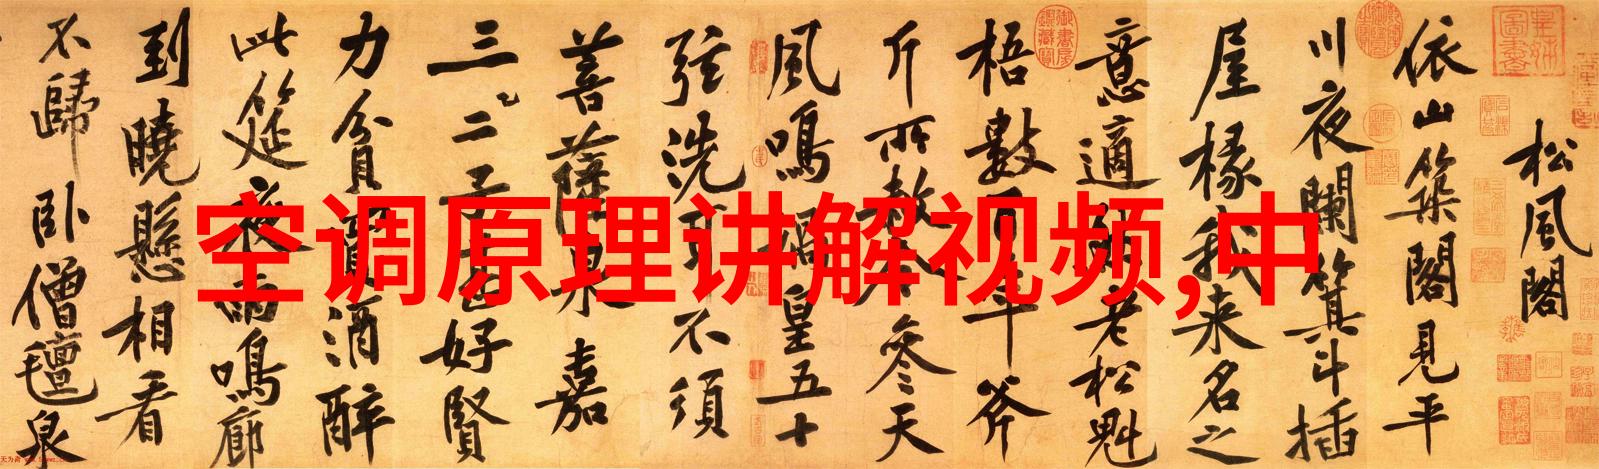 空调原理讲解视频,中
松風閣
依山築閣見平
川夜闌箕斗插
屋椽我來名之
意適然老松魁
梧數百年斧
斤所赦今參天
風鳴媧皇五十
弦洗耳不須
菩薩泉嘉
三二子甚好賢
力貧買酒醉
此筵夜雨鳴廊
到曉懸相看
不歸臥僧氈泉